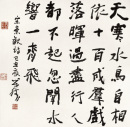 天寒水鳥自相
依十百成群戲
落暉過盡行人
都不起忽聞冰
響一齊飛